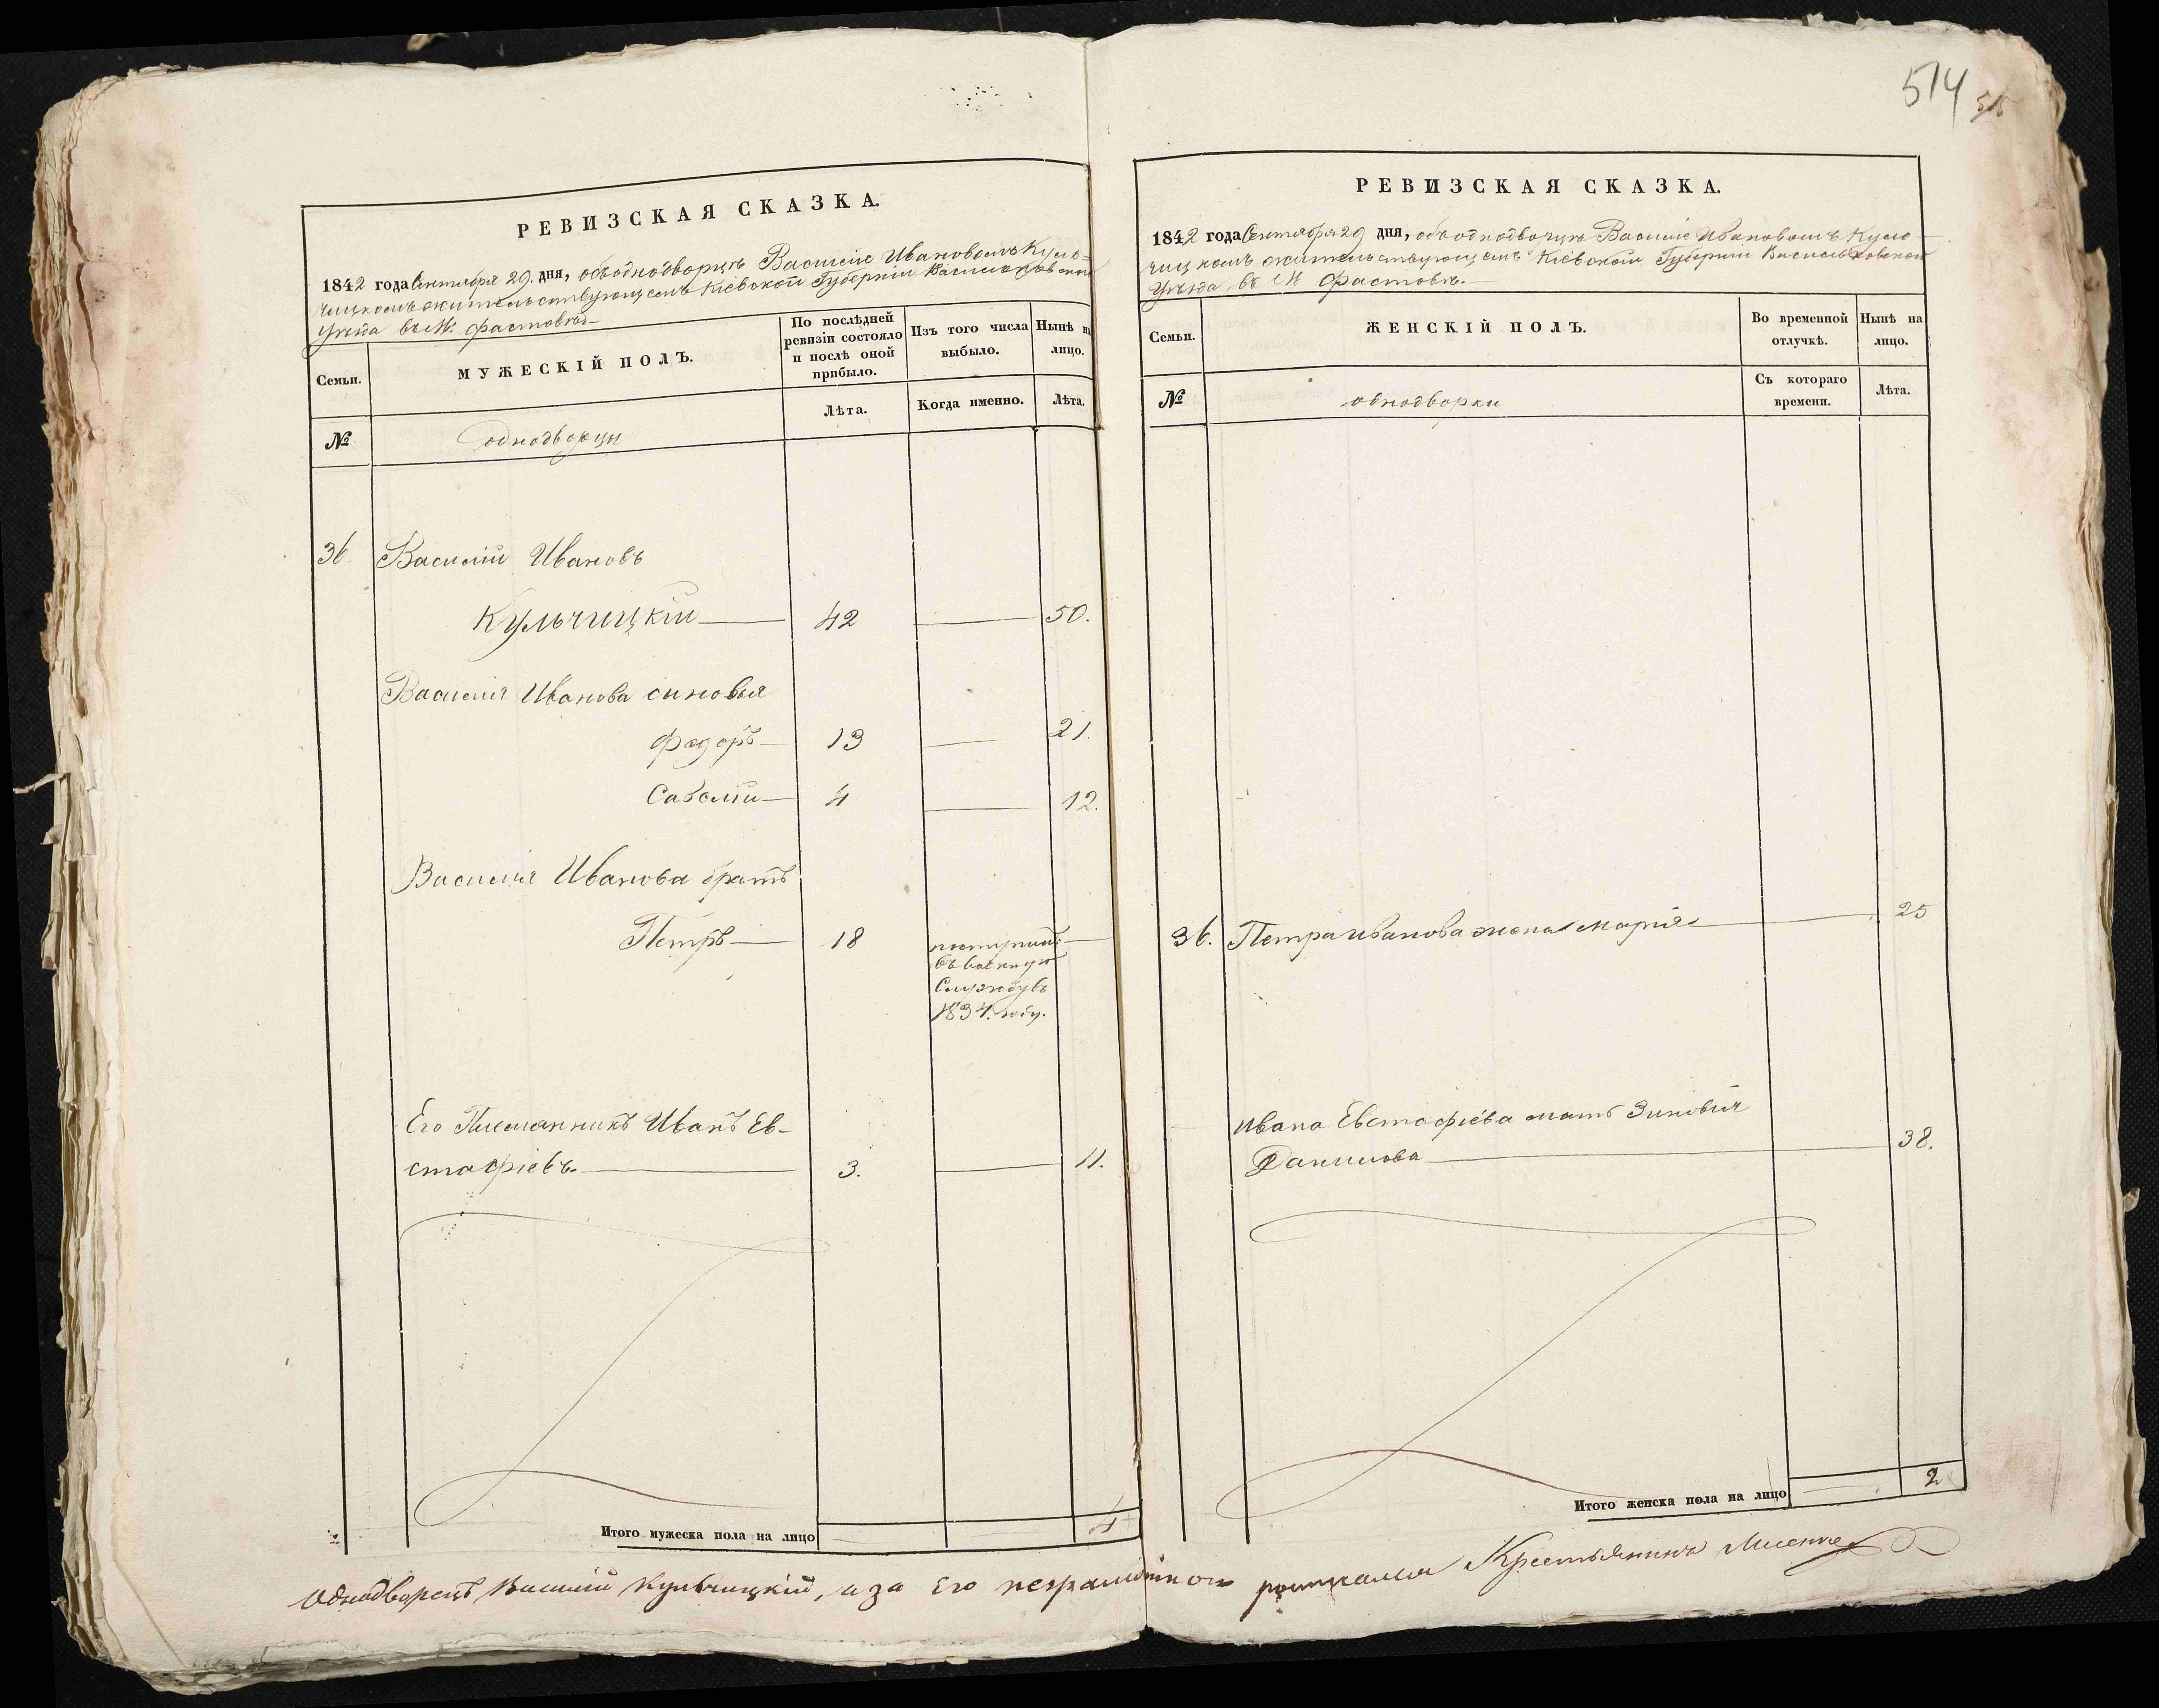 514 515
РЕВИЗСКАЯ СКАЗКА.
1842 года Сентября 29. дня, объ однодворцѣ Василіе Ивановомъ Куль-
чицкомъ жительствующемъ Кіевской Губерніи Васильковской
Уѣзда въ М. Фастовѣ.
Семьи.
МУЖЕСКІЙ ПОЛЪ.
По послѣдней
ревизіи состояло
и послѣ оной
прибыло.
Изъ того числа
выбыло.
Нынѣ на
лицо.
№
однодворцы
Лѣта.
Когда именно.
Лѣта.
36 Василій Ивановъ
Кульчицкій 42 50.
Василія Иванова сыновья
Федоръ 13 21.
Савелій 4 12.
Василія Иванова братъ
Петръ 18
поступилъ
въ военную
Службу въ
1834. году.
Его Племянникъ Иванъ Ев-
стафіевъ. 3. 11.
Итого мужеска пола на лицо 4
РЕВИЗСКАЯ СКАЗКА.
1842 года Сентября 29 дня, объ однодворцѣ Василіе Ивановомъ Куль-
чицкомъ жительствующемъ Кіевской Губерніи Васильковской
Уѣзда въ М Фастовѣ.
Семьи.
ЖЕНСКІЙ ПОЛЪ.
Во временной
отлучкѣ.
Нынѣ на
лицо.
№
однодворки
Съ котораго
времени.
Лѣта.
36. Петра Иванова жена Марія 25
Ивана Евстафіева мать Зиновія
Данилова 38.
Итого женска пола на лицо 2
Однодворецъ Василій Кульчицкій, а за Его неграмотного Крестьянинъ